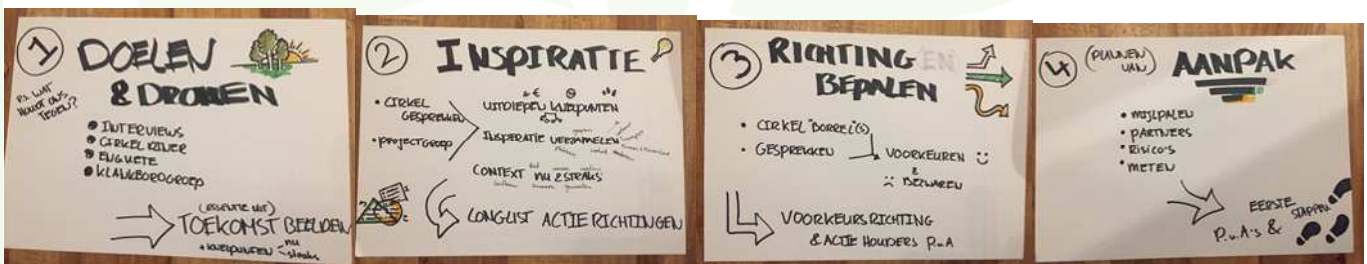 1
DOELEN
& DROMEN
P.S. WAT
HOUDT ONS
TEGEN?
• INTERVIEWS
• CIRKEL RIVER
• ENQUETE
• KLANKBORDGROEP
(ESSENTIE UIT)
TOEKOMST BEELDEN
+ KNELPUNTEN - nu
- straks
2
INSPIRATIE
• CIRKEL
GESPREKKEN
• PROJECTGROEP
UITDIEPEN KNELPUNTEN
INSPIRATIE VERZAMELEN
CONTEXT NU & STRAKS
LONGLIST ACTIE RICHTINGEN
3
RICHTING
BEPALEN
• CIRKEL "BORREL(S)
• GESPREKKEN
VOORKEUREN
&
BEZWAREN
VOORKEURSRICHTING
& ACTIE HOUDERS P.v.A
4
(PLANNEN
VAN)
AANPAK
• MIJLPALEN
• PARTNERS
• RISICO'S
• METEN
EERSTE
STAPPEN
P.v.A's &